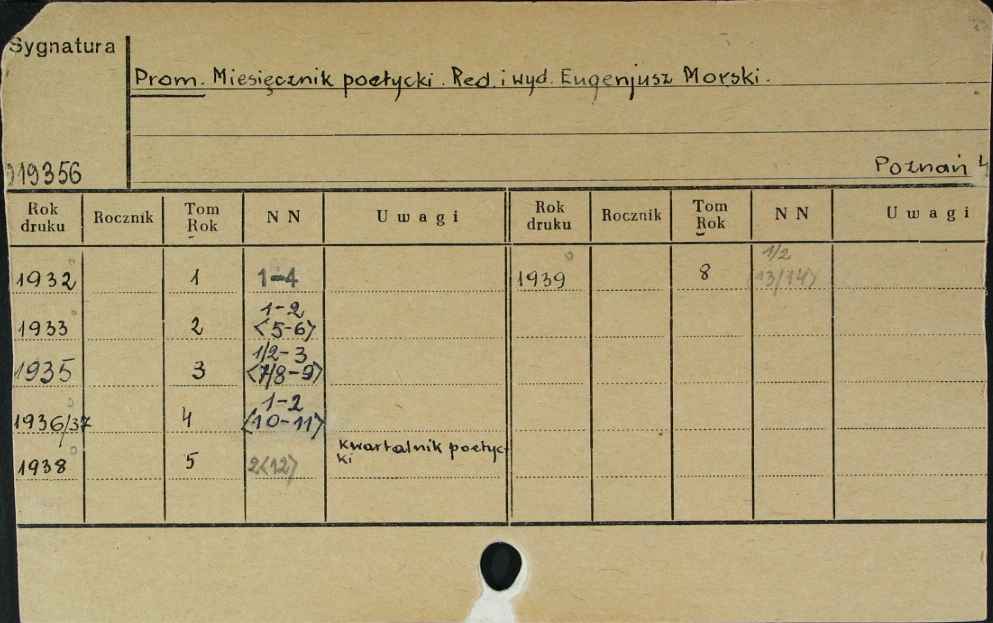 Sygnatura
Prom. Miesięcznik poetycki. Red. i wyd. Eugenjusz Morski.
919356
Poznań 4
Rok druku Rocznik Tom Rok N N Uwagi Rok druku Rocznik Tom Rok N N Uwagi
1932 1 1-4 1939 8 1/2 <13/14>
1933 2 1-2 <5-6>
1935 3 1/2-3 <7/8-9>
1936/37 4 1-2 <10-11>
1938 5 2<12> kwartalnik poetycki